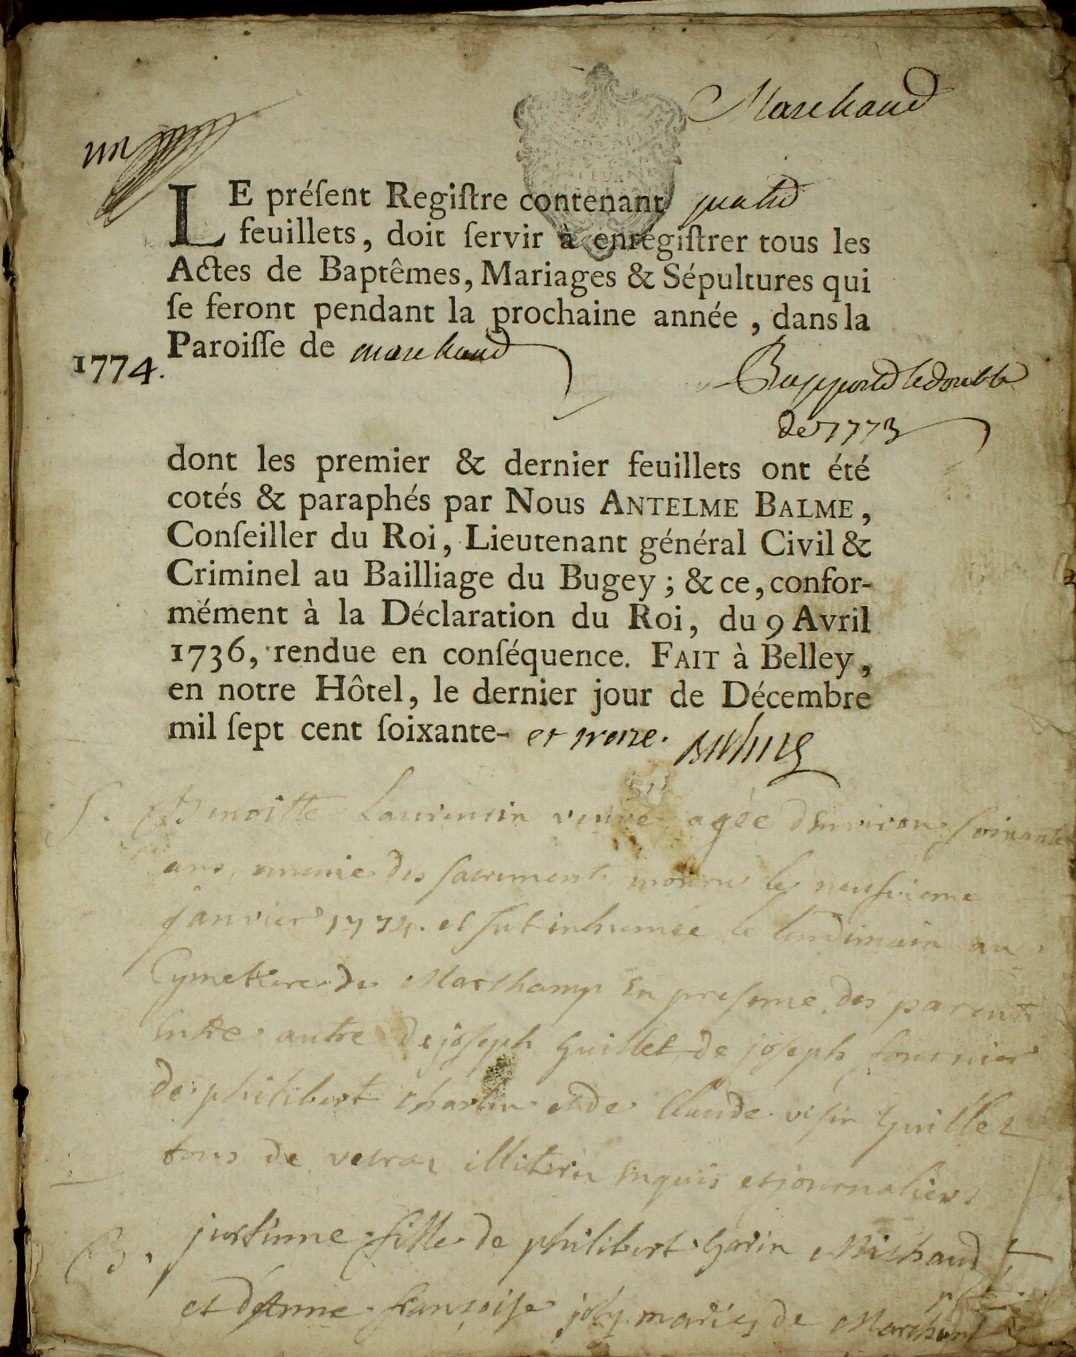 Marchand
un
LE préſent Regiſtre contenant quatre
feuillets, doit ſervir à enrégiſtrer tous les
Actes de Baptêmes, Mariages & Sépultures qui
ſe feront pendant la prochaine année, dans la
Paroiſſe de marchand
1774.
Rapporté le double
de 1773
dont les premier & dernier feuillets ont été
cotés & paraphés par Nous ANTELME BALME,
Conſeiller du Roi, Lieutenant général Civil &
Criminel au Bailliage du Bugey; & ce, confor-
mément à la Déclaration du Roi, du 9 Avril
1736, rendue en conſéquence. FAIT à Belley,
en notre Hôtel, le dernier jour de Décembre
mil ſept cent ſoixante- et treize.
S. Benoitte Laurencin veuve agée d'Environ soixante
ans, munie des sacrements mourut le neufvieme
janvier 1774. et fut inhumée le lendimain au
Cymettiere de Marchamp En presence des parents
Entre autre de joseph Guillet de joseph fournier
de philibert Charlin et de Claude Guillet
tous de illiterés Enquis et journaliers
B. justinne fille de philibert Michaud
et d'Anne françoise joly mariés de Marchamp